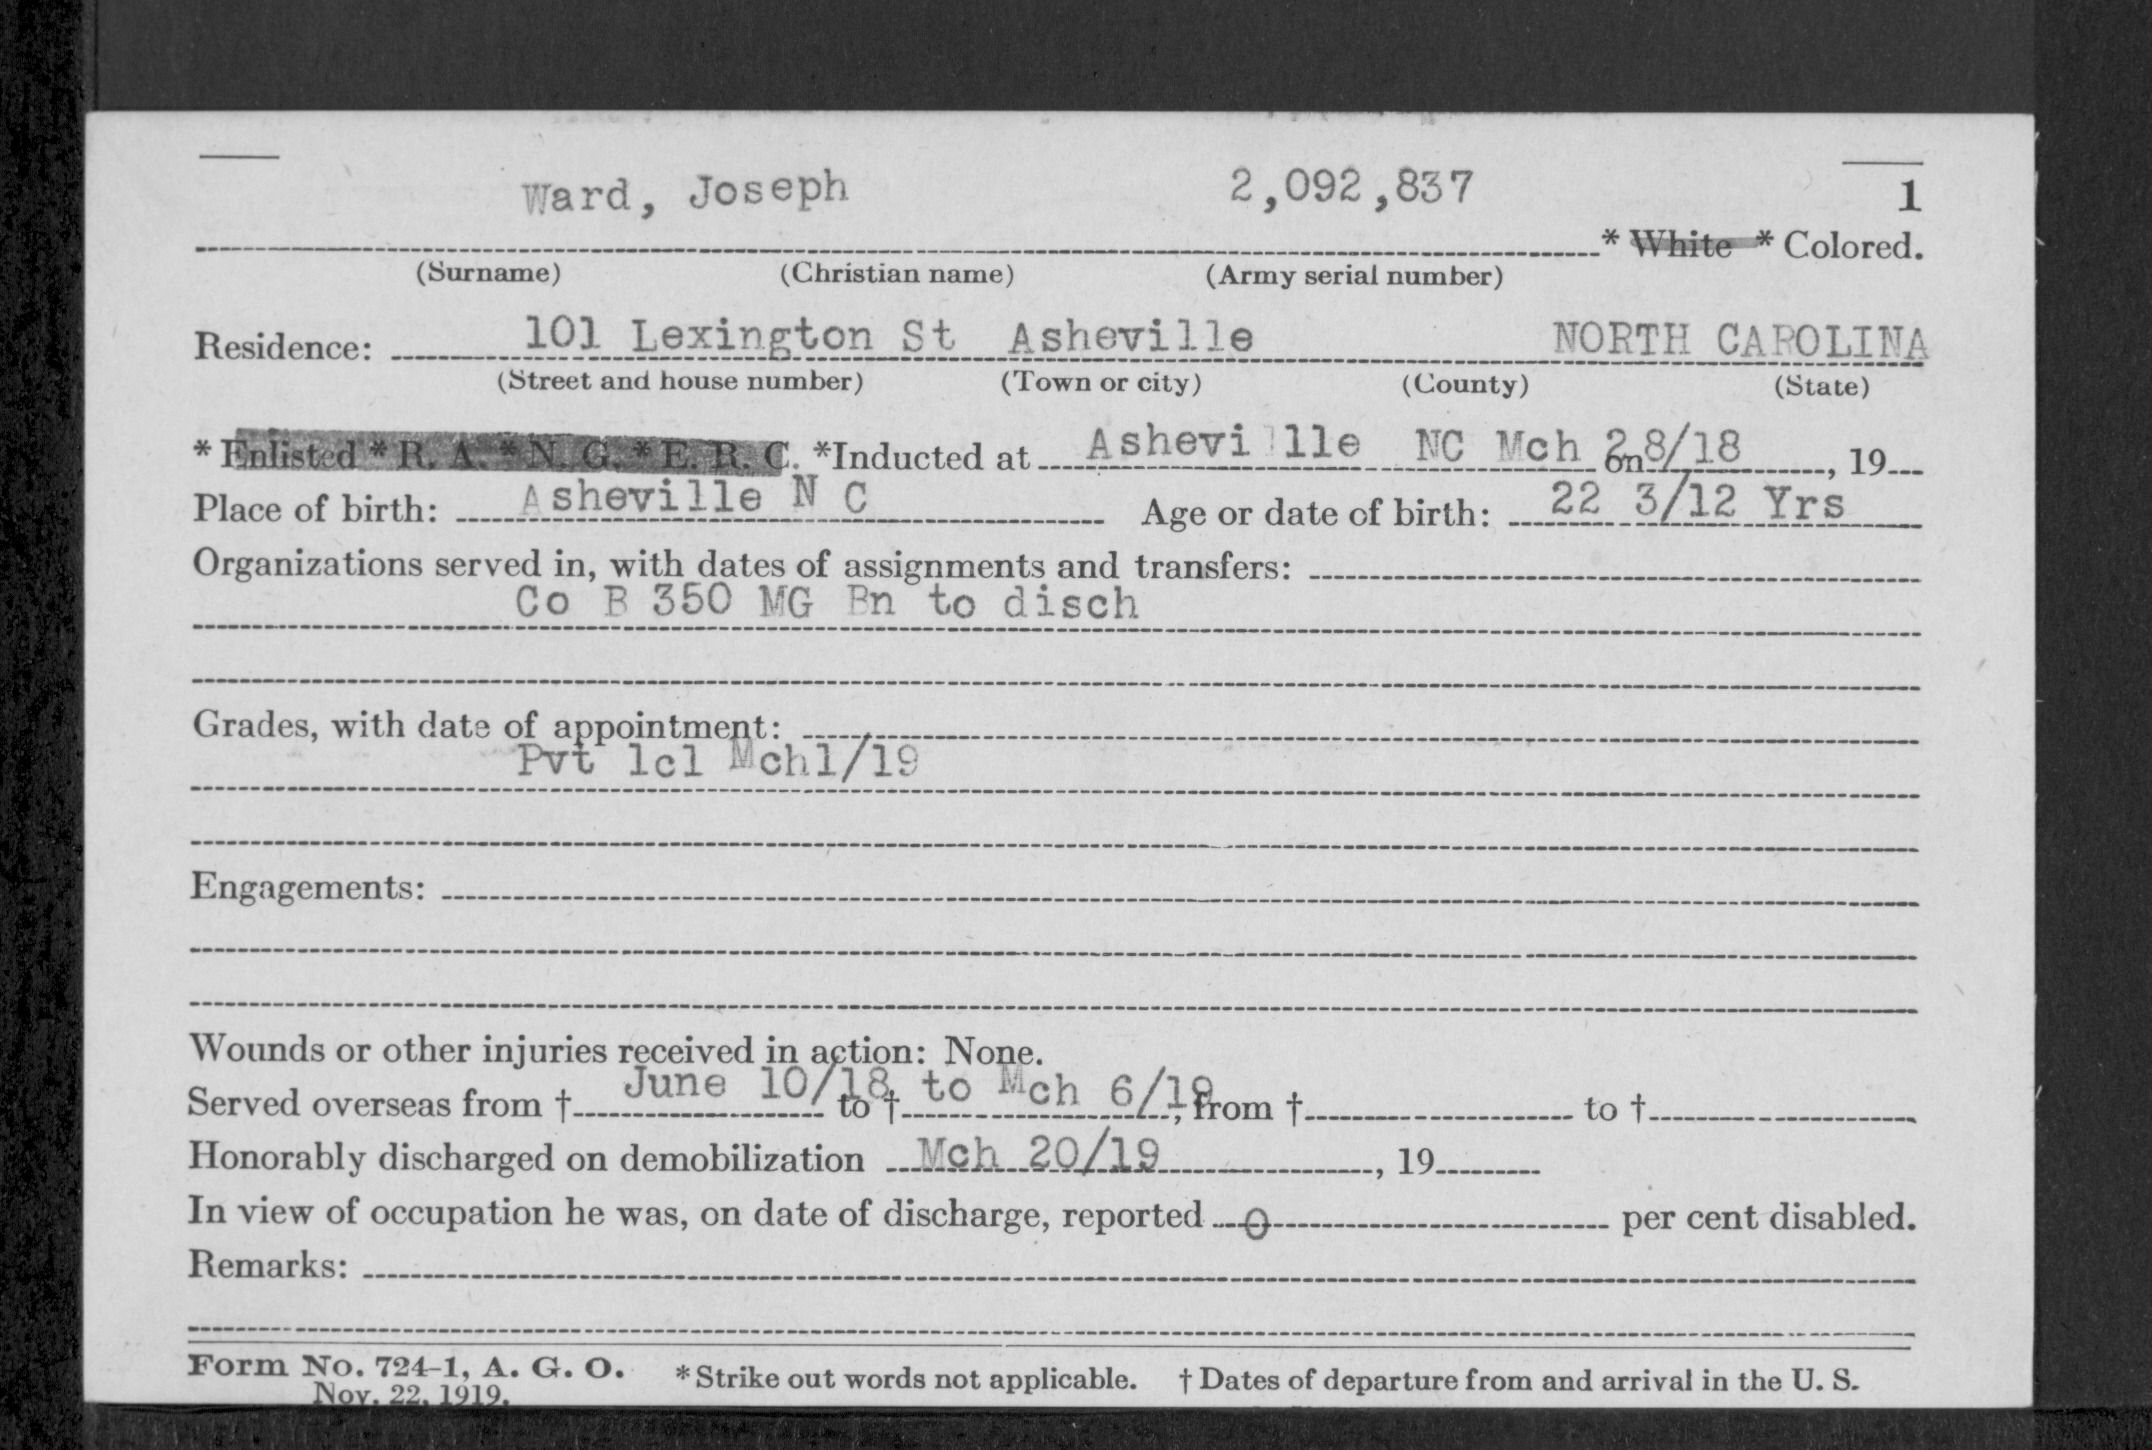 Ward, Joseph 2,092,837 1
* White * Colored.
(Surname) (Christian name) (Army serial number)
Residence: 101 Lexington St Asheville NORTH CAROLINA
(Street and house number) (Town or city) (County) (State)
* Enlisted * R. A. * N. G. * E. R. C. *Inducted at Asheville NC Mch 28/18 on , 19
Place of birth: Asheville N C Age or date of birth: 22 3/12 Yrs
Organizations served in, with dates of assignments and transfers:
Co B 350 MG Bn to disch
Grades, with date of appointment:
Pvt 1cl Mch1/19
Engagements:
Wounds or other injuries received in action: None.
Served overseas from † June 10/18 to † to Mch 6/19, from † to †
Honorably discharged on demobilization Mch 20/19, 19
In view of occupation he was, on date of discharge, reported 0 per cent disabled.
Remarks:
Form No. 724-1, A. G. O. * Strike out words not applicable. † Dates of departure from and arrival in the U. S.
Nov. 22, 1919.